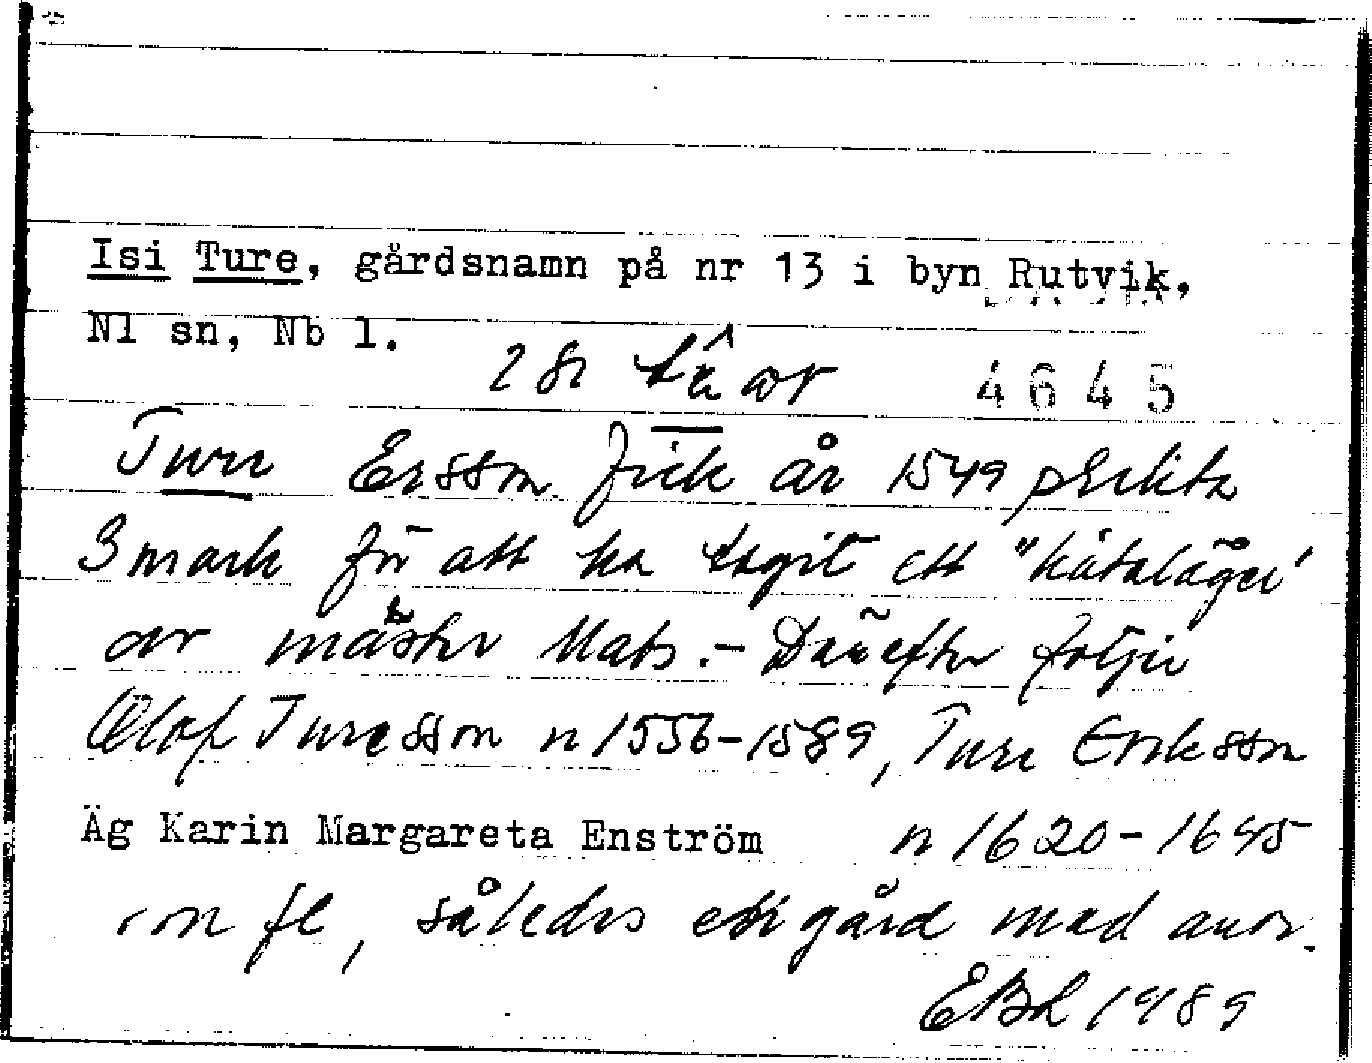 Isi Ture, gårdsnamn på nr 13 i byn Rutvik,
Nl sn, Nb l.
4645
Ture Ersson fick år 1549 plikta
3 mark för att ha tagit ett "kåtaläger"
av mäster Mats. - Därefter följer
Olof Turesson n 1556-1589, Ture Eriksson
Äg Karin Margareta Enström n 1620-1645
m fl, således en gård med anor.
EBL 1989